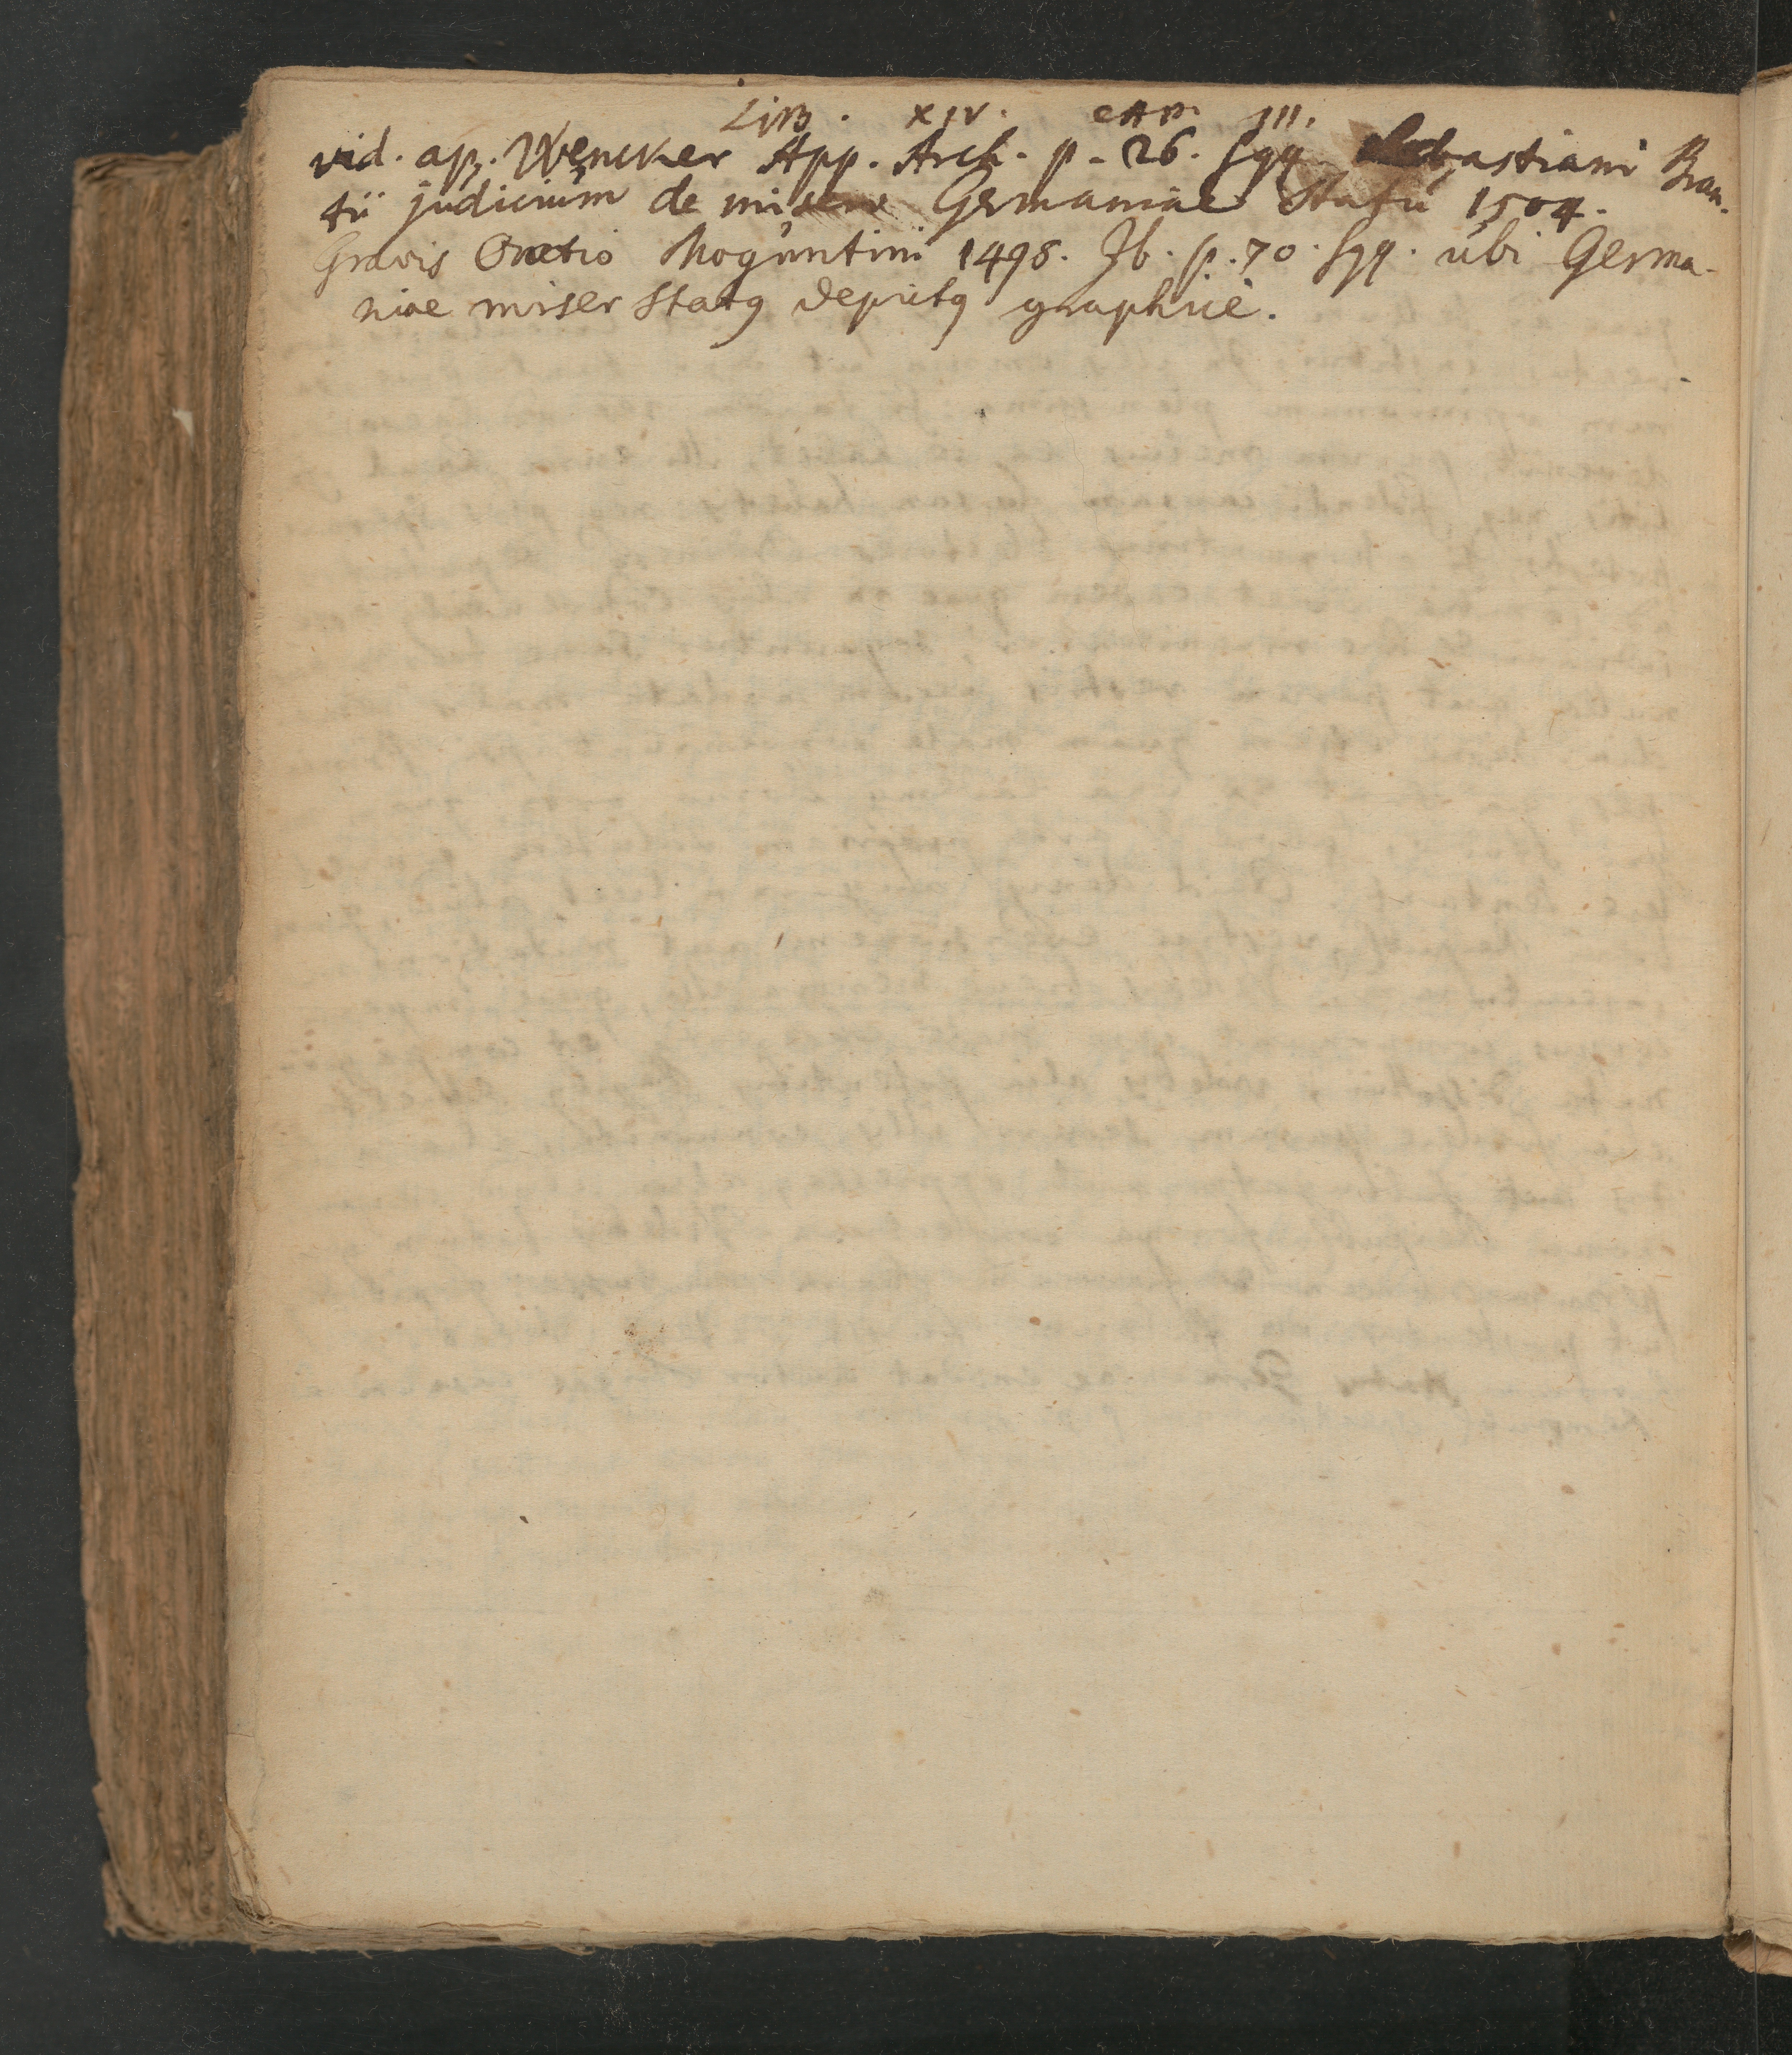 LIB. XIV. CAP. III.
vid. ap. Wencker App. Arch. p. 26. sqq. Sebastiani Bran-
tii judicium de misero Germaniae Statu 1504.
Gravis Oratio Moguntini 1498. Ib. p. 70. sqq. ubi Germa-
niae miser Statꝯ depictꝯ graphice.